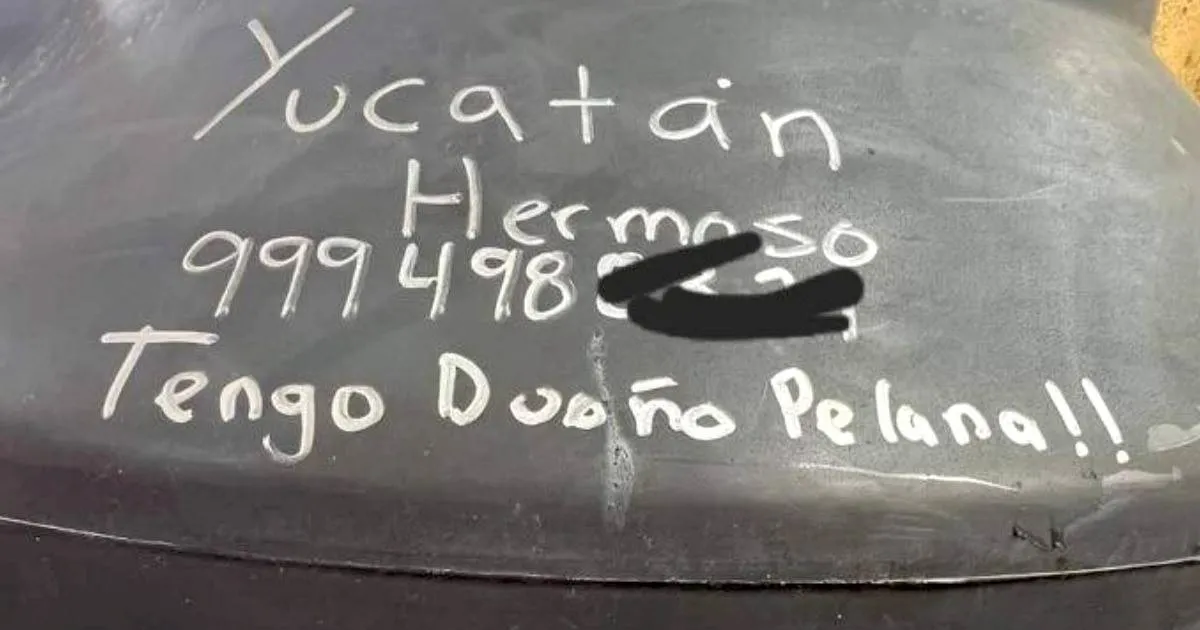 Yucatán
Hermoso
999 498
Tengo Dueño Pelana!!